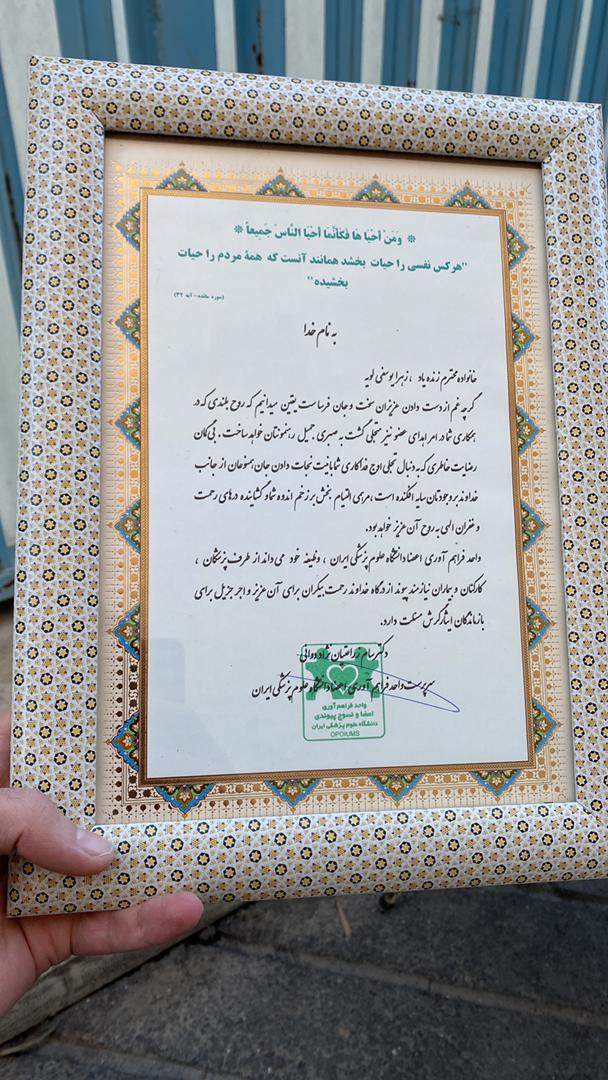 ❊ وَمَنْ أَحْیَا هَا فَكَأَنَّمَا أَحْیَا النَّاسَ جَمِیعاً ❊
"هرکس نفسی را حیات بخشد همانند آنست که همهٔ مردم را حیات
بخشیده"
(سوره مائده– آیه ۳۲)
به نام خدا
خانواده محترم زنده یاد ، زهرا یوسفی لویه
گرچه غم از دست دادن عزیزان سخت و جان فرساست یقین میدانیم که روح بلندی که در
همکاری شما در امر اهدای عضو نیز متجلی گشت به صبری جمیل رهنمونتان خواهد ساخت . بی گمان
رضایت خاطری که به دنبال تجلی اوج فداکاری شما بابت نجات دادن جان همنوعان از جانب
خداوند بر وجودتان سایه افکنده است ، مرهمی التیام بخش بر زخم اندوه شما و گشاینده درهای رحمت
و غفران الهی به روح آن عزیز خواهد بود.
واحد فراهم آوری اعضا دانشگاه علوم پزشکی ایران ، وظیفه خود می داند از طرف پزشکان ،
کارکنان و بیماران نیازمند پیوند از درگاه خداوند رحمت بیکران برای آن عزیز و اجر جزیل برای
بازماندگان ایثارگرش مسئلت دارد.
دکتر سام زراعتیان نژاد دوانی
سرپرست واحد فراهم آوری اعضا دانشگاه علوم پزشکی ایران
واحد فراهم آوری
اعضا و نسوج پیوندی
دانشگاه علوم پزشکی ایران
OPOIUMS